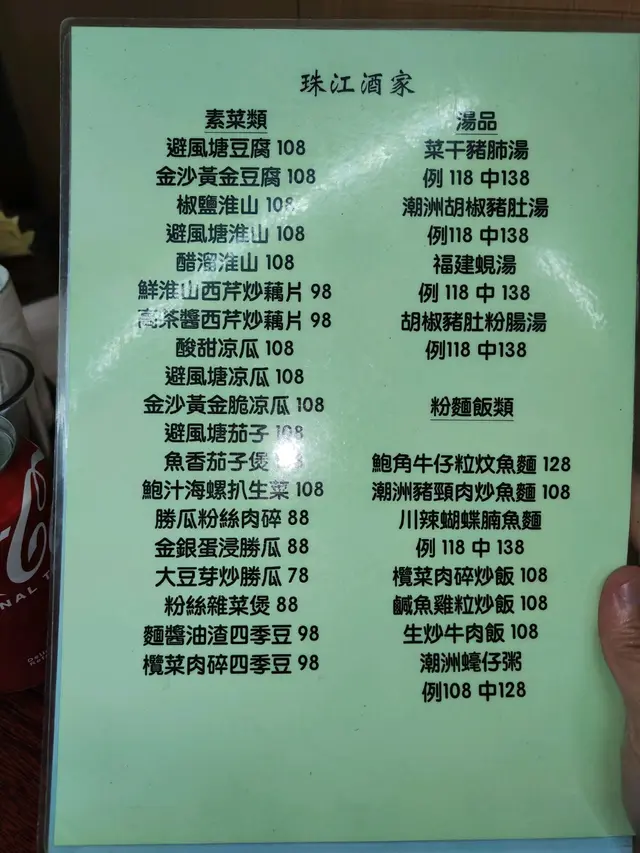 珠江酒家
素菜類
避風塘豆腐 108
金沙黃金豆腐 108
椒鹽淮山 108
避風塘淮山 108
醋溜淮山 108
鮮淮山西芹炒藕片 98
茶醬西芹炒藕片 98
酸甜凉瓜 108
避風塘凉瓜 108
金沙黃金脆凉瓜 108
避風塘茄子 108
魚香茄子煲
鮑汁海螺扒生菜 108
勝瓜粉絲肉碎 88
金銀蛋浸勝瓜 88
大豆芽炒勝瓜 78
粉絲雜菜煲 88
麵醬油渣四季豆 98
欖菜肉碎四季豆 98
湯品
菜干豬肺湯
例 118 中138
潮洲胡椒豬肚湯
例118 中138
福建蜆湯
例 118 中 138
胡椒豬肚粉腸湯
例118 中138
粉麵飯類
鮑角牛仔粒炆魚麵 128
潮洲豬頸肉炒魚麵 108
川辣蝴蝶腩魚麵
例 118 中 138
欖菜肉碎炒飯 108
鹹魚雞粒炒飯 108
生炒牛肉飯 108
潮洲蠔仔粥
例108 中128